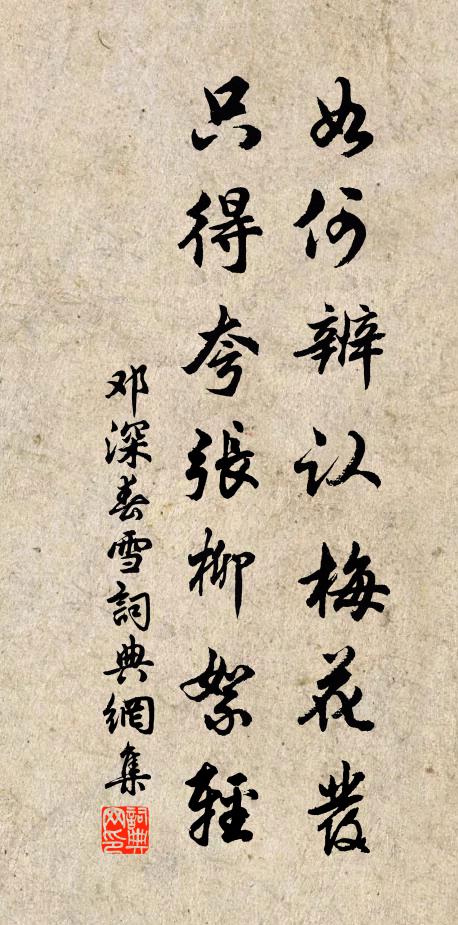 如何辨认梅花發
只得夸張柳絮輕
邓深春雪詞典網集
詞典網印